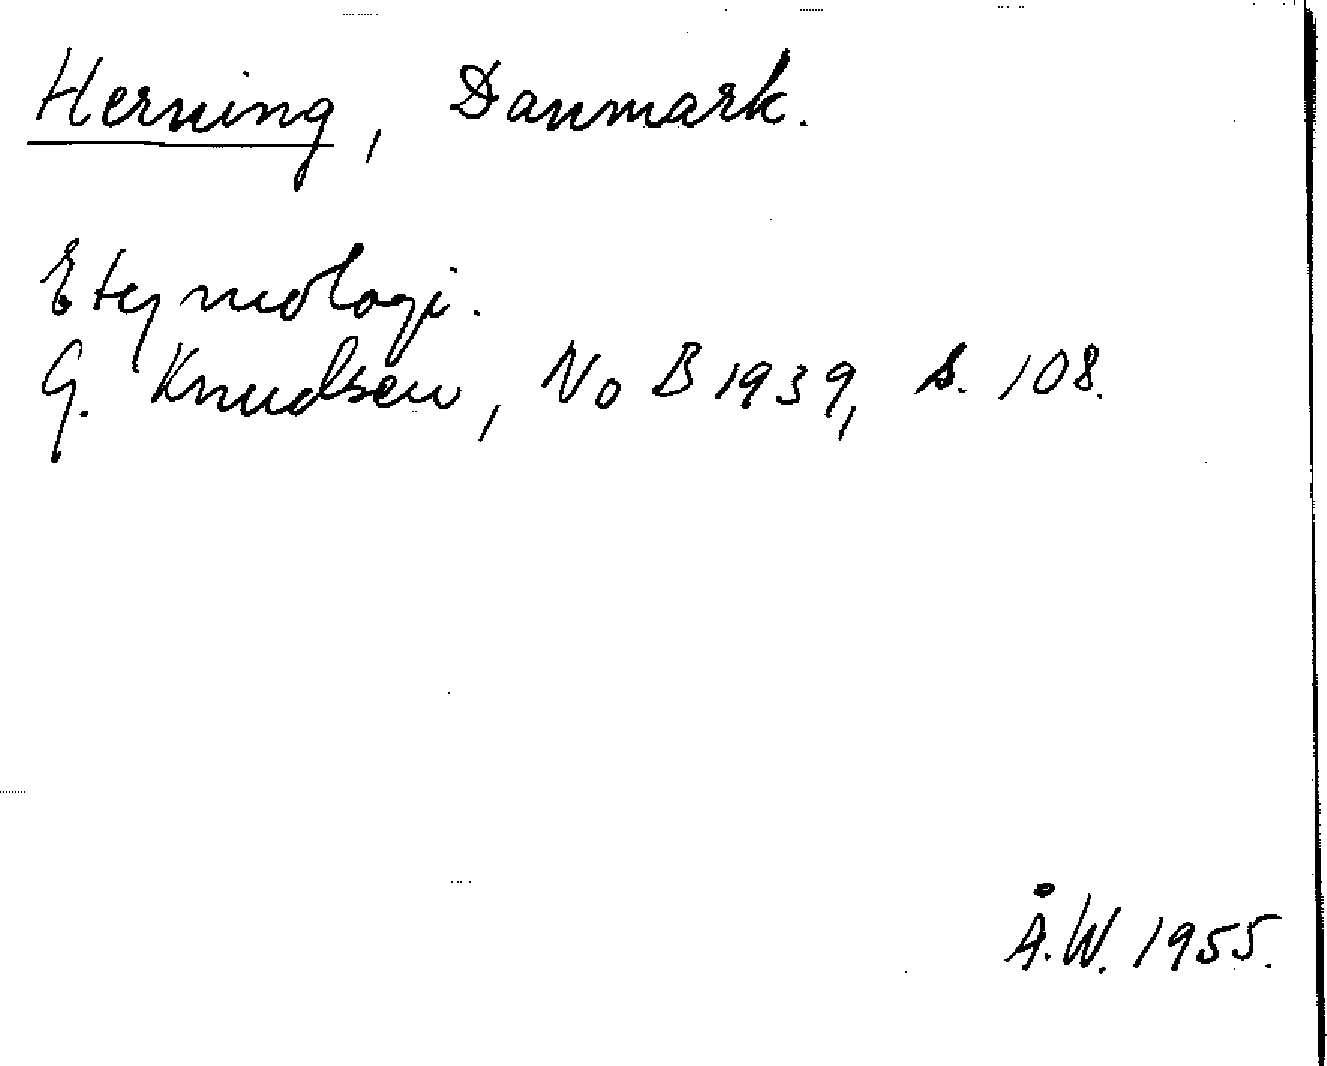 Herning, Danmark.
Etymologi.
G. Knudsen, NoB 1939, s. 108.
Å.W. 1955.